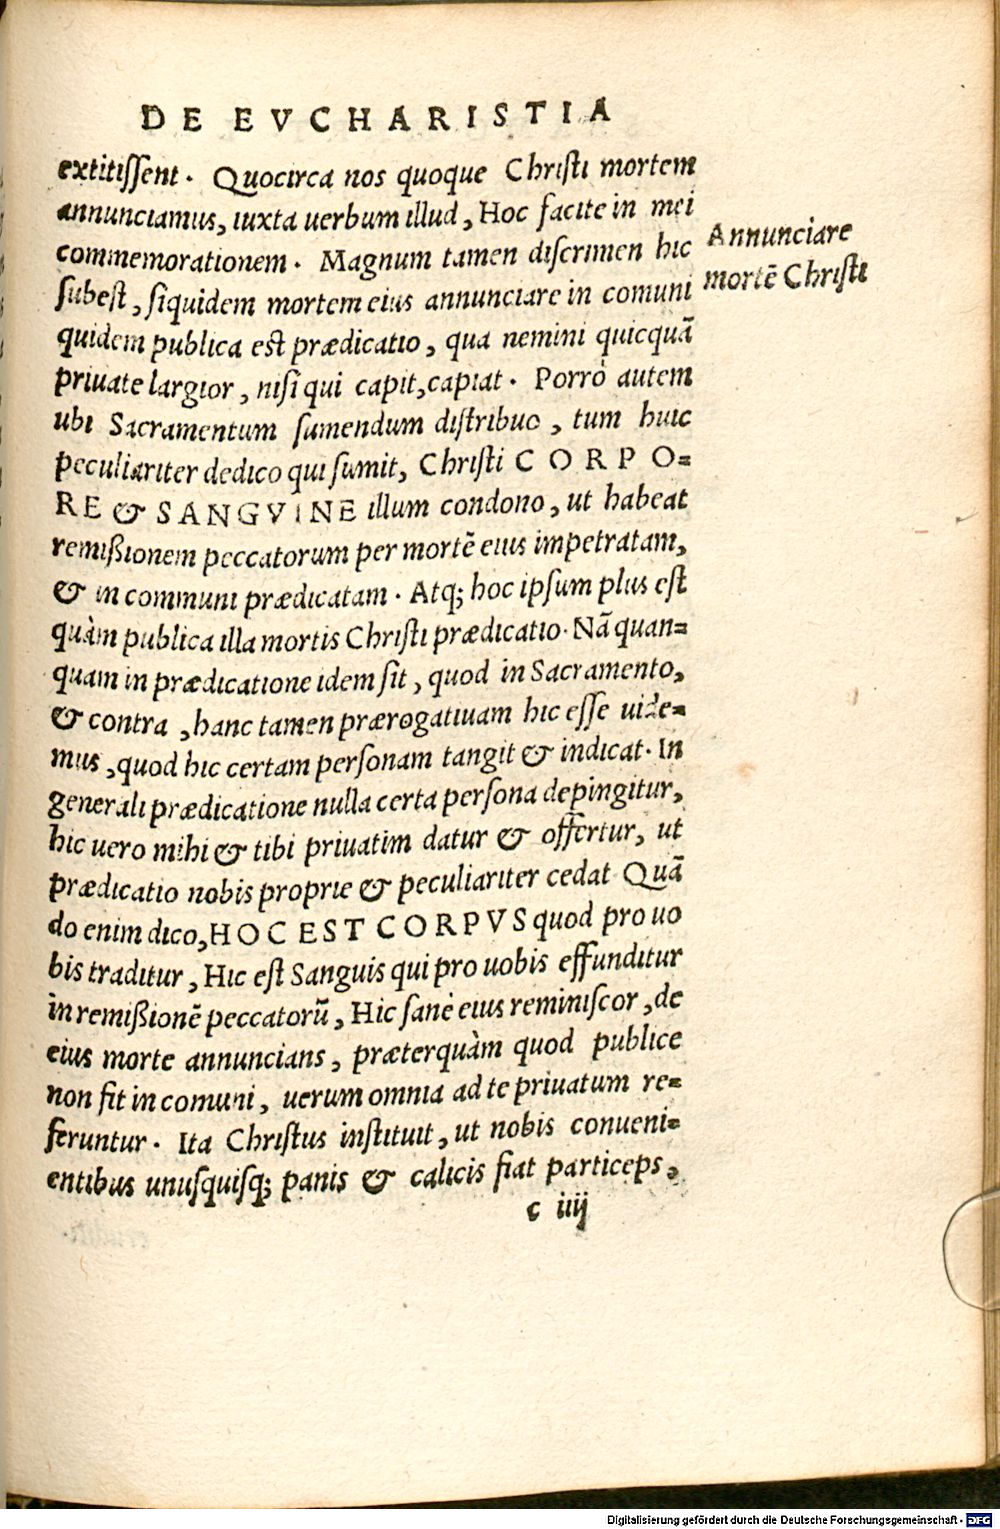 DE EVCHARISTIA
extitissent. Quocirca nos quoque Christi mortem
annunciamus, iuxta uerbum illud, Hoc facite in mei
commemorationem. Magnum tamen discrimen hic
subest, siquidem mortem eius annunciare in comuni
quidem publica est prædicatio, qua nemini quicquã
priuate largior, nisi qui capit, capiat. Porrò autem
ubi Sacramentum sumendum distribuo, tum huic
peculiariter dedico qui sumit, Christi CORPO=
RE & SANGVINE illum condono, ut habeat
remißionem peccatorum per mortẽ eius impetratam,
& in communi prædicatam. Atq; hoc ipsum plus est
quàm publica illa mortis Christi prædicatio. Nã quan=
quam in prædicatione idem sit, quod in Sacramento,
& contra, hanc tamen prærogatiuam hic esse uide=
mus, quod hic certam personam tangit & indicat. In
generali prædicatione nulla certa persona depingitur,
hic uero mihi & tibi priuatim datur & offertur, ut
prædicatio nobis proprie & peculiariter cedat Quã
do enim dico, HOC EST CORPVS quod pro uo
bis traditur, Hic est Sanguis qui pro uobis effunditur
in remißionẽ peccatorũ, Hic sanè eius reminiscor, de
eius morte annuncians, præterquàm quod publice
non fit in comuni, uerum omnia ad te priuatum re=
feruntur. Ita Christus instituit, ut nobis conueni=
entibus unusquisq; panis & calicis fiat particeps,
c iiij
Annunciare
mortẽ Christi
Digitalisierung gefördert durch die Deutsche Forschungsgemeinschaft - DFG